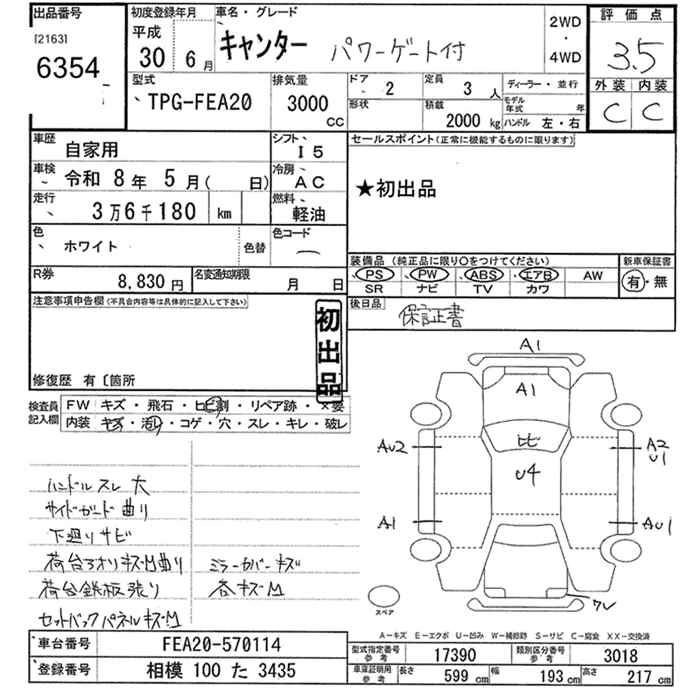 出品番号
[2163]
6354
初度登録年月
平成
30 年 6 月
車名・グレード
キャンター パワーゲート付
2WD
・
4WD
評価点
3.5
外装 内装
C C
型式
TPG-FEA20
排気量
3000 CC
ドア 2
定員 3 人
ディーラー・並行
形状
積載 2000 kg
モデル年式 年
ハンドル 左・右
車歴 自家用
シフト I 5
車検 令和 8 年 5 月 ( 日)
冷房 AC
走行 3万6千180 km
燃料 軽油
色 ホワイト
色替
色コード
R券 8,830 円
名変通知期限 月 日
セールスポイント(正常に機能するものに限ります)
★初出品
装備品 (純正品に限り○をつけてください)
新車保証書
PS PW ABS エアB AW
SR ナビ TV カワ
有・無
後日品
保証書
注意事項申告欄(不具合内容等は具体的に記入して下さい)
初出品
修復歴 有〔箇所
検査員記入欄
FW キズ・飛石・ヒビ割・リペア跡・×要
内装 キズ・汚レ・コゲ・穴・スレ・キレ・破レ
ハンドルスレ大
サイドガード曲り
下廻りサビ
荷台アオリキズM曲り
荷台鉄板張り
セットバックパネルキズM
ミラーカバーキズ
各キズM
A1
A1
ヒビ
U4
AU2
A2
U1
A1
AU1
ワレ
スペア
A-キズ E-エクボ U-凹み W-補修跡 S-サビ C-腐食 XX-交換済
車台番号 FEA20-570114
登録番号 相模 100 た 3435
型式指定番号 参考 17390
類別区分番号 参考 3018
車庫証明用 参考 長さ 599 cm 幅 193 cm 高さ 217 cm